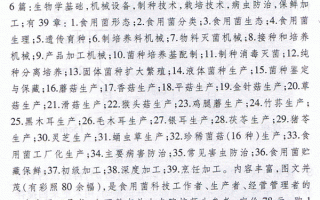 6 篇:生物学基础,机械设备,制种技术,栽培技术,病虫防治,保鲜加
工;有 39 章:1.食用菌形态;2.食用菌分类;3.食用菌生态;4.食用菌
生理;5.遗传育种;6.制培养料机械;7.物料灭菌机械;8.接种和培养
机械;9.产品加工机械;10.菌种培养基配制;11.制种消毒灭菌;12.纯
种分离培养;13.固体菌种扩大繁殖;14.液体菌种生产;15.菌种鉴定
与保藏;16.蘑菇生产;17.香菇生产;18.平菇生产;19.金针菇生产;20.草
菇生产;21.滑菇生产;22.猴头菇生产;23.鸡腿蘑生产;24.竹荪生产;
25.黑木耳生产;26.毛木耳生产;27.银耳生产;28.茯苓生产;29.猪苓
生产;30.灵芝生产;31.蛹虫草生产;32.珍稀菌菇(16 种)生产;33.食
用菌工厂化生产;34.主要病害防治;35.常见害虫防治;36.食用菌贮
藏保鲜;37.初级加工;38.深度加工;39.烹饪加工。内容丰富,图文并
茂(有彩照 80 余幅),是食用菌科技工作者、生产者、经营管理者的